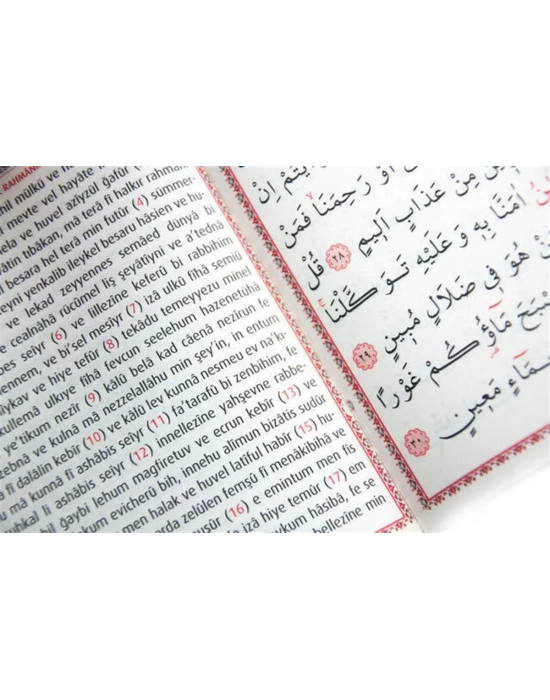 RAHMAN
mülkü ve
mevte vel hayate
ve huvel azîyzül gafûr
tıbâkan, mâ terâ fî halkır rahmân
besara hel terâ min futûr (4) sümmer-
yenkalib ileykel besaru hâsien ve hu-
ve lekad zeyyennes semâed dünyâ bi
cealnâhâ rücûmel liş şeyâtiyni ve a'tednâ
seıyr (6) ve lillezîne keferû bi rabbihim
ve bi'sel mesıyr (7) izâ ulkû fîhâ semiû
ve hiye tefûr (8) tekâdu temeyyezu minel
ulkıye fîhâ fevcun seelehum hazenetühâ
e'tikum nezîr (9) kâlû belâ kad câenâ nezîrun fe
ve kulnâ mâ nezzelallâhu min şey'in, in entum
fî dalâlin kebîr (10) ve kâlû lev kunnâ nesmeu ev na'kı-
mâ kunnâ fî ashâbis seıyr (11) fa'tarafû bi zenbihim, fe
li ashâbis seıyr (12) innellezîne yahşevne rabbe-
ğaybi lehum mağfiretuv ve ecrun kebîr (13) ve
evicherû bih, innehu alîmun bizâtis sudûr
men halak ve huvel latîful habîr (15) hu-
zelûlen femşû fî menâkibihâ ve
(16) e emintum men fis
izâ hiye temûr (17) em
hâsibâ, fe se
min
اِنْ
اَوْ رَحِمَنَا فَمَنْ
مِنْ عَذَابٍ اَل۪يمٍ ٢٨ قُلْ
اٰمَنَّا بِه۪ وَعَلَيْهِ تَوَكَّلْنَا
هُوَ ف۪ي ضَلَالٍ مُب۪ينٍ ٢٩
مَٓاؤُ۬كُمْ غَوْرًا
مَع۪ينٍ ٣٠